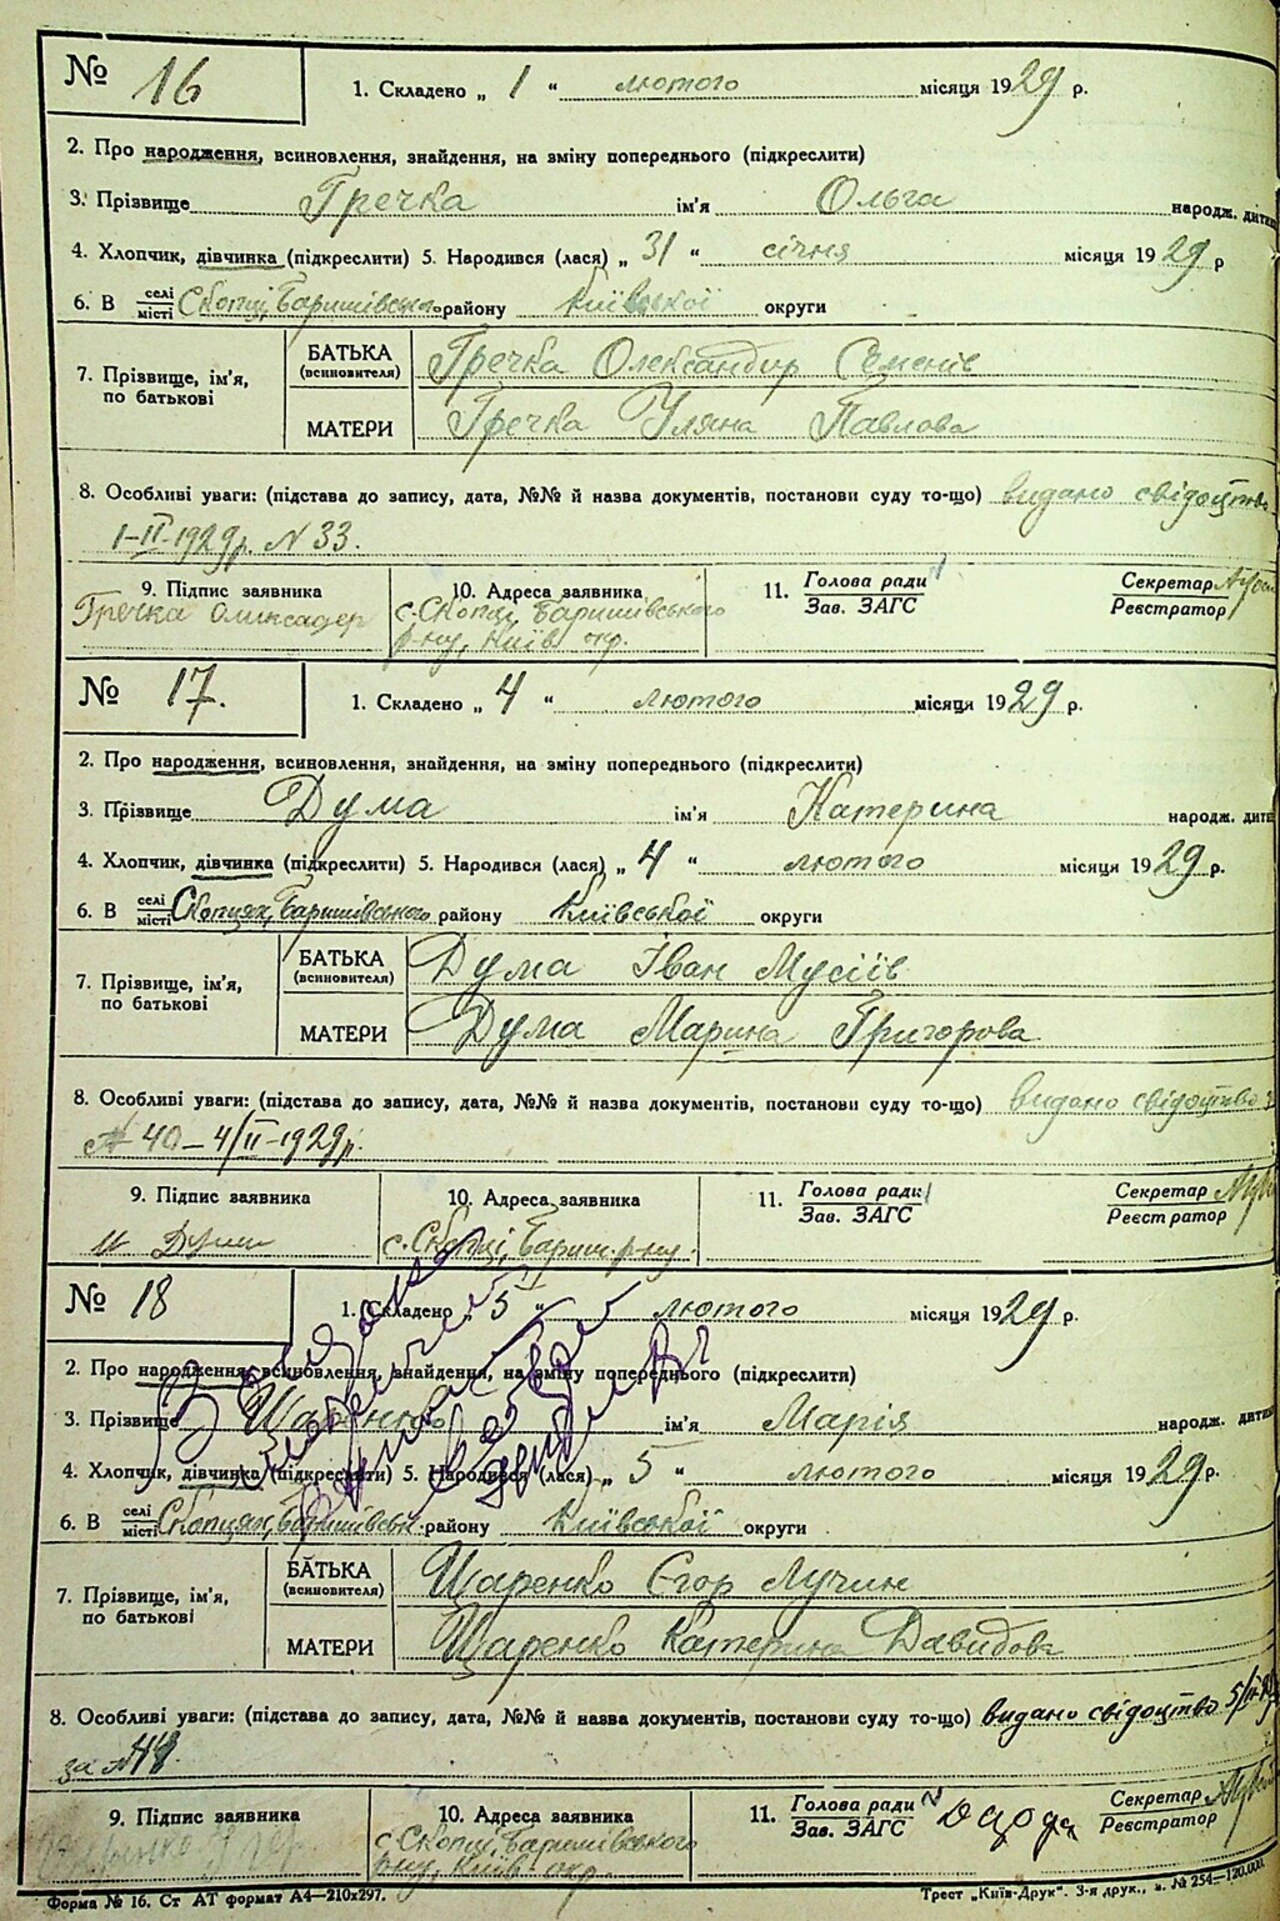 № 16
1. Складено „ 1 “ лютого місяця 1929 р.
2. Про народження, всиновлення, знайдення, на зміну попереднього (підкреслити)
3. Прізвище Гречка ім'я Ольга народж. дитин
4. Хлопчик, дівчинка (підкреслити) 5. Народився (лася) „ 31 “ січня місяця 1929 р
6. В селі місті Скопці, Баришівського району Київської округи
7. Прізвище, ім'я, по батькові
БАТЬКА (всиновителя) Гречка Олександир Семенів
МАТЕРИ Гречка Уляна Павлова
8. Особливі уваги: (підстава до запису, дата, №№ й назва документів, постанови суду то-що) видано свідоцтво
1-II-1929р. N 33.
9. Підпис заявника
10. Адреса заявника
11. Голова ради Зав. ЗАГС
Секретар Реєстратор
Гречка Оликсадер
с. Скопці, Баришівського
р-ну, Київ. окр.
№ 17.
1. Складено „ 4 “ лютого місяця 1929 р.
2. Про народження, всиновлення, знайдення, на зміну попереднього (підкреслити)
3. Прізвище Дума ім'я Катерина народж. дити
4. Хлопчик, дівчинка (підкреслити) 5. Народився (лася) „ 4 “ лютого місяця 1929 р.
6. В селі місті Скопцях, Баришівського району Київської округи
7. Прізвище, ім'я, по батькові
БАТЬКА (всиновителя) Дума Іван Мусіїв
МАТЕРИ Дума Марина Григорова
8. Особливі уваги: (підстава до запису, дата, №№ й назва документів, постанови суду то-що) видано свідоцтво з
№ 40 – 4/II-1929р.
9. Підпис заявника
10. Адреса заявника
11. Голова ради Зав. ЗАГС
Секретар Реєстратор
с. Скопці, Бариш. р-ну.
№ 18
1. Складено „ 5 “ лютого місяця 1929 р.
2. Про народження, всиновлення, знайдення, на зміну попереднього (підкреслити)
3. Прізвище Щаренко ім'я Марія народж. дитин
4. Хлопчик, дівчинка (підкреслити) 5. Народився (лася) „ 5 “ лютого місяця 1929 р.
6. В селі місті Скопцях, Баришівськ. району Київської округи
7. Прізвище, ім'я, по батькові
БАТЬКА (всиновителя) Щаренко Єгор Лучин
МАТЕРИ Щаренко Катерина Давидова
8. Особливі уваги: (підстава до запису, дата, №№ й назва документів, постанови суду то-що) видано свідоцтво
за №
9. Підпис заявника
10. Адреса заявника
11. Голова ради Зав. ЗАГС
Секретар Реєстратор
с. Скопці, Баришівського
р-ну, Київ. окр.
Форма № 16. Ст АТ формат А4—210x297.
Трест „Київ-Друк“. 3-я друк., з. № 254—120.000.